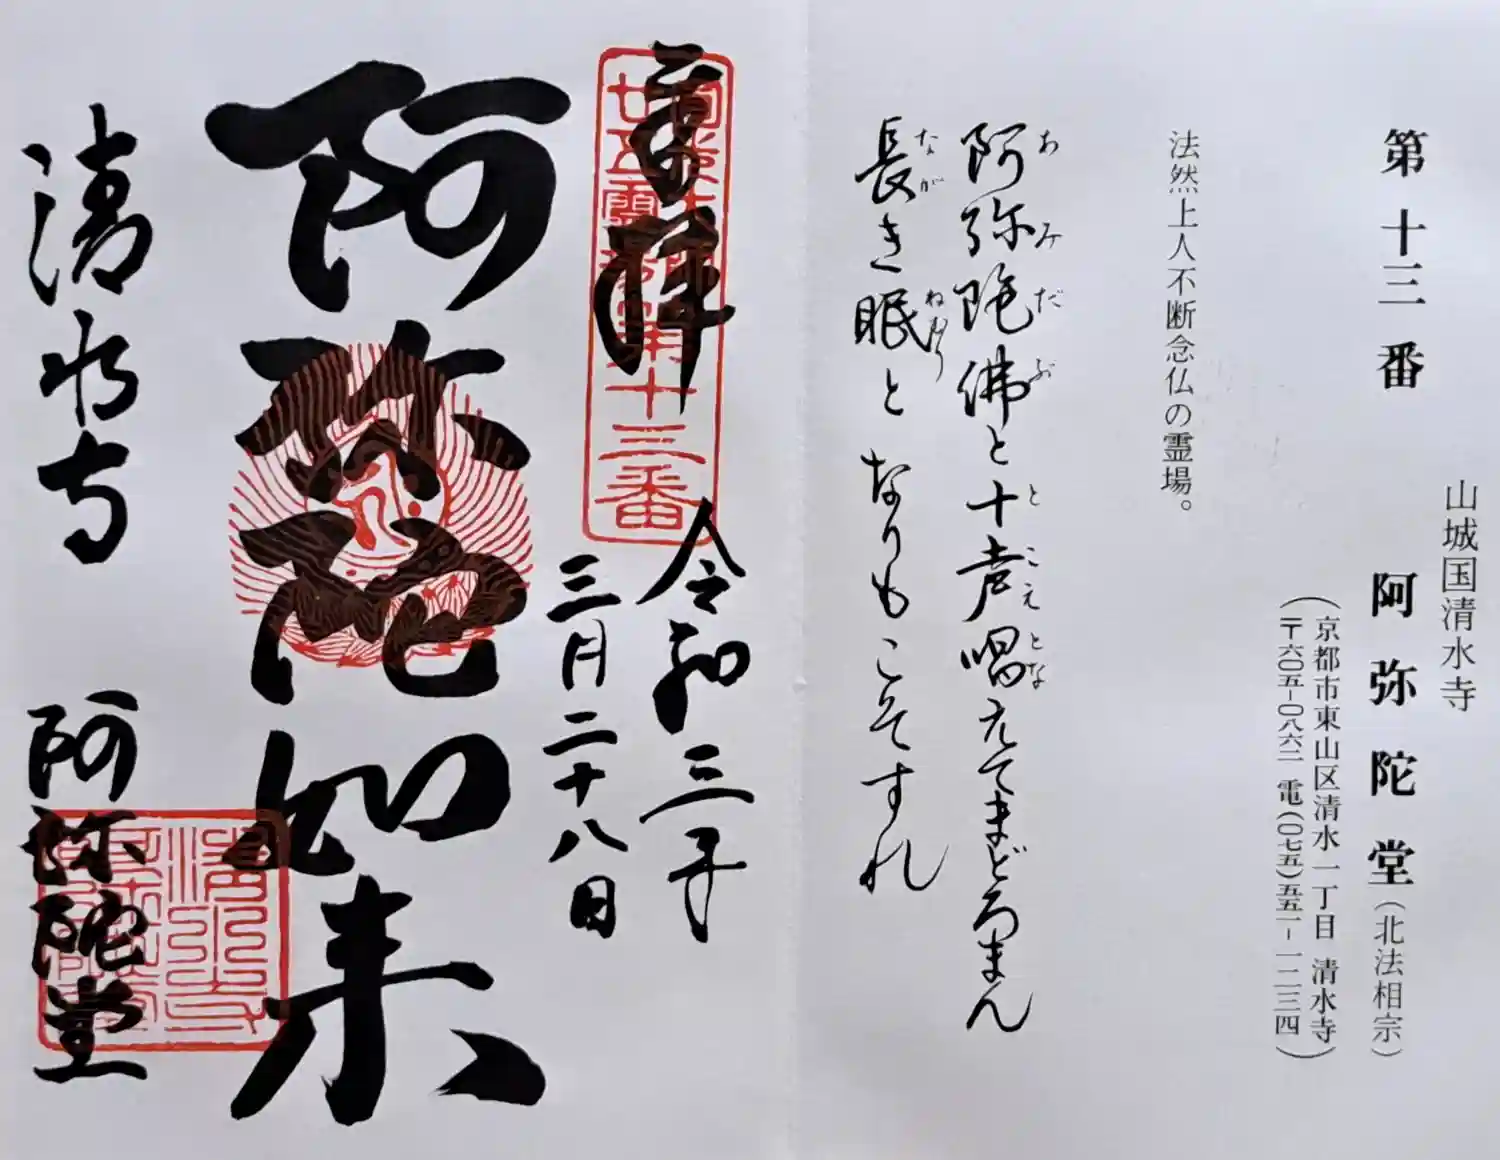 第十三番
山城国清水寺
阿弥陀堂（北法相宗）
（京都市東山区清水一丁目 清水寺
〒六〇五-〇八六二 電(〇七五)五五一-一二三四）
法然上人不断念仏の霊場。
阿弥陀佛と十声唱えてまどろまん
あみだぶ と こえとな
長き眠となりもこそすれ
なが ねむり
奉拝
廿五霊場第十三番
令和三年
三月二十八日
阿弥陀如来
清水寺 阿弥陀堂
清水寺